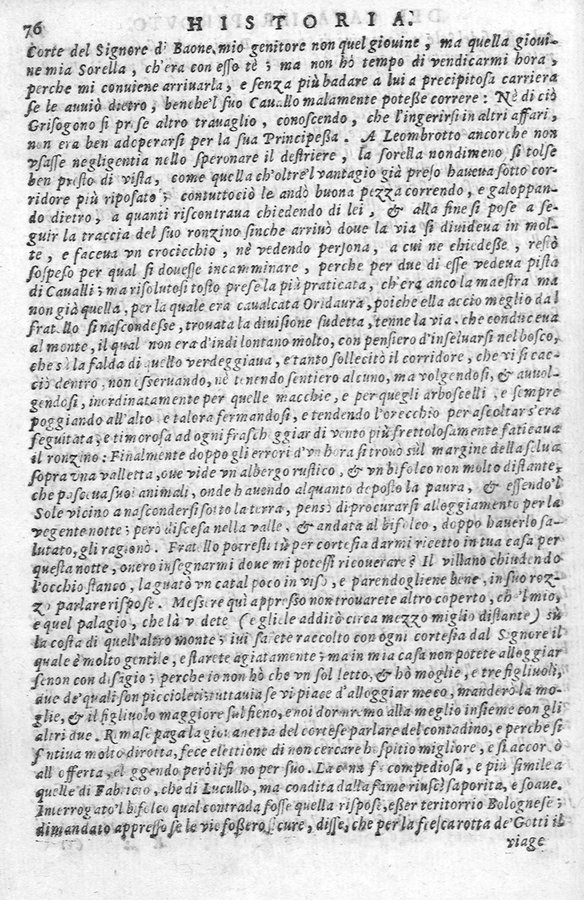 76 HISTORIA.
Corte del Signore d'Baone mio genitore non quel giovine, ma quella giovi-
ne mia Sorella, ch'era con esso tè; ma non hò tempo di vendicarmi hora,
perche mi conviene arrivarla, e senza più badare a lui a precipitosa carriera
se le avviò dietro, benche'l suo Cavallo malamente poteße correre: Nè di ciò
Grisogono si prese altro travaglio, conoscendo, che l'ingerirsi in altri affari,
non era ben adoperarsi per la sua Principeßa. A Leombrotto ancorche non
vsasse negligentia nello speronare il destriere, la sorella nondimeno si tolse
ben presto di vista, come quella ch'oltre'l vantagio già preso haveva sotto cor-
ridore più riposato; contuttociò le andò buona pezza correndo, e galoppan-
do dietro, a quanti riscontrava chiedendo di lei, & alla fine si pose a se-
guir la traccia del suo ronzino sinche arrivò dove la via si divideva in mol-
te, e faceva vn crocicchio, nè vedendo persona, a cui ne chiedeße, restò
sospeso per qual si dovesse incamminare, perche per due di esse vedeva pista
di Cavalli; ma risolutosi tosto prese la più praticata, ch'era anco la maestra ma
non già quella, per la quale era cavalcata Oridaura, poiche ella accio meglio dal
fratello si nascondesse, trovata la divisione sudetta, tenne la via. che conduceva
al monte, il qual non era d'indi lontano molto, con pensiero d'inselvarsi nel bosco,
che sù la falda di quello verdeggiava, e tanto sollecitò il corridore, che vi si cac-
ciò dentro, non osservando, nè tenendo sentiero alcuno, ma volgendosi, & avvol-
gendosi, inordinatamente per quelle macchie, e per quegli arboscelli, e sempre
poggiando all'alto e talora fermandosi, e tendendo l'orecchio per ascoltar s'era
seguitata, e timorosa ad ogni frascheggiar di vento più frettolosamente faticava
il ronzino: Finalmente doppo gli errori d'vn hora si trovò sul margine della selva
sopra vna valletta, ove vide vn albergo rustico, & vn bifolco non molto distante,
che pasceva suoi animali, onde havendo alquanto deposto la paura, & essendo'l
Sole vicino a nascondersi sotto la terra, pensò di procurarsi alloggiamento per la
vegente notte; però discesa nella valle. & andata al bifolco, doppo haverlo sa-
lutato, gli ragionò. Fratello potresti tù per cortesia darmi ricetto in tua casa per
questa notte, overo insegnarmi dove mi potessi ricoverare? Il villano chiudendo
l'occhio stanco, la guatò vn catal poco in viso, e parendogliene bene, in suo roz-
zo parlare rispose. Messere quì appresso non trovarete altro coperto, che'l mio,
e quel palagio, che là vedete (e gliele additò circa mezzo miglio distante) sù
la costa di quell'altro monte; ivi sarete raccolto con ogni cortesia dal Signore il
quale è molto gentile, e starete agiatamente; ma in mia casa non potete alloggiar
se non con disagio; perche io non hò che vn sol letto, & hò moglie, e tre figlivoli,
due de' quali son piccioleti: tuttavia se vi piace d'alloggiar meco, manderò la mo-
glie, & il figlivolo maggiore sul fieno, e noi dormiremo alla meglio insieme con gli
altri due. Rimase paga la giovanetta del cortese parlare del contadino, e perche si
sentiva molto dirotta, fece elettione di non cercare hospitio migliore, e si accorò
all'offerta, eleggendo però il fieno per suo. La cena fù compediosa, e più simile a
quelle di Fabricio, che di Lucullo, ma condita dalla fame riuscì saporita, e soave.
Interrogato'l bifolco qual contrada fosse quella rispose, eßer territorio Bolognese;
dimandato appresso se le vie foßero sicure, disse, che per la fresca rotta de' Gotti il
viage